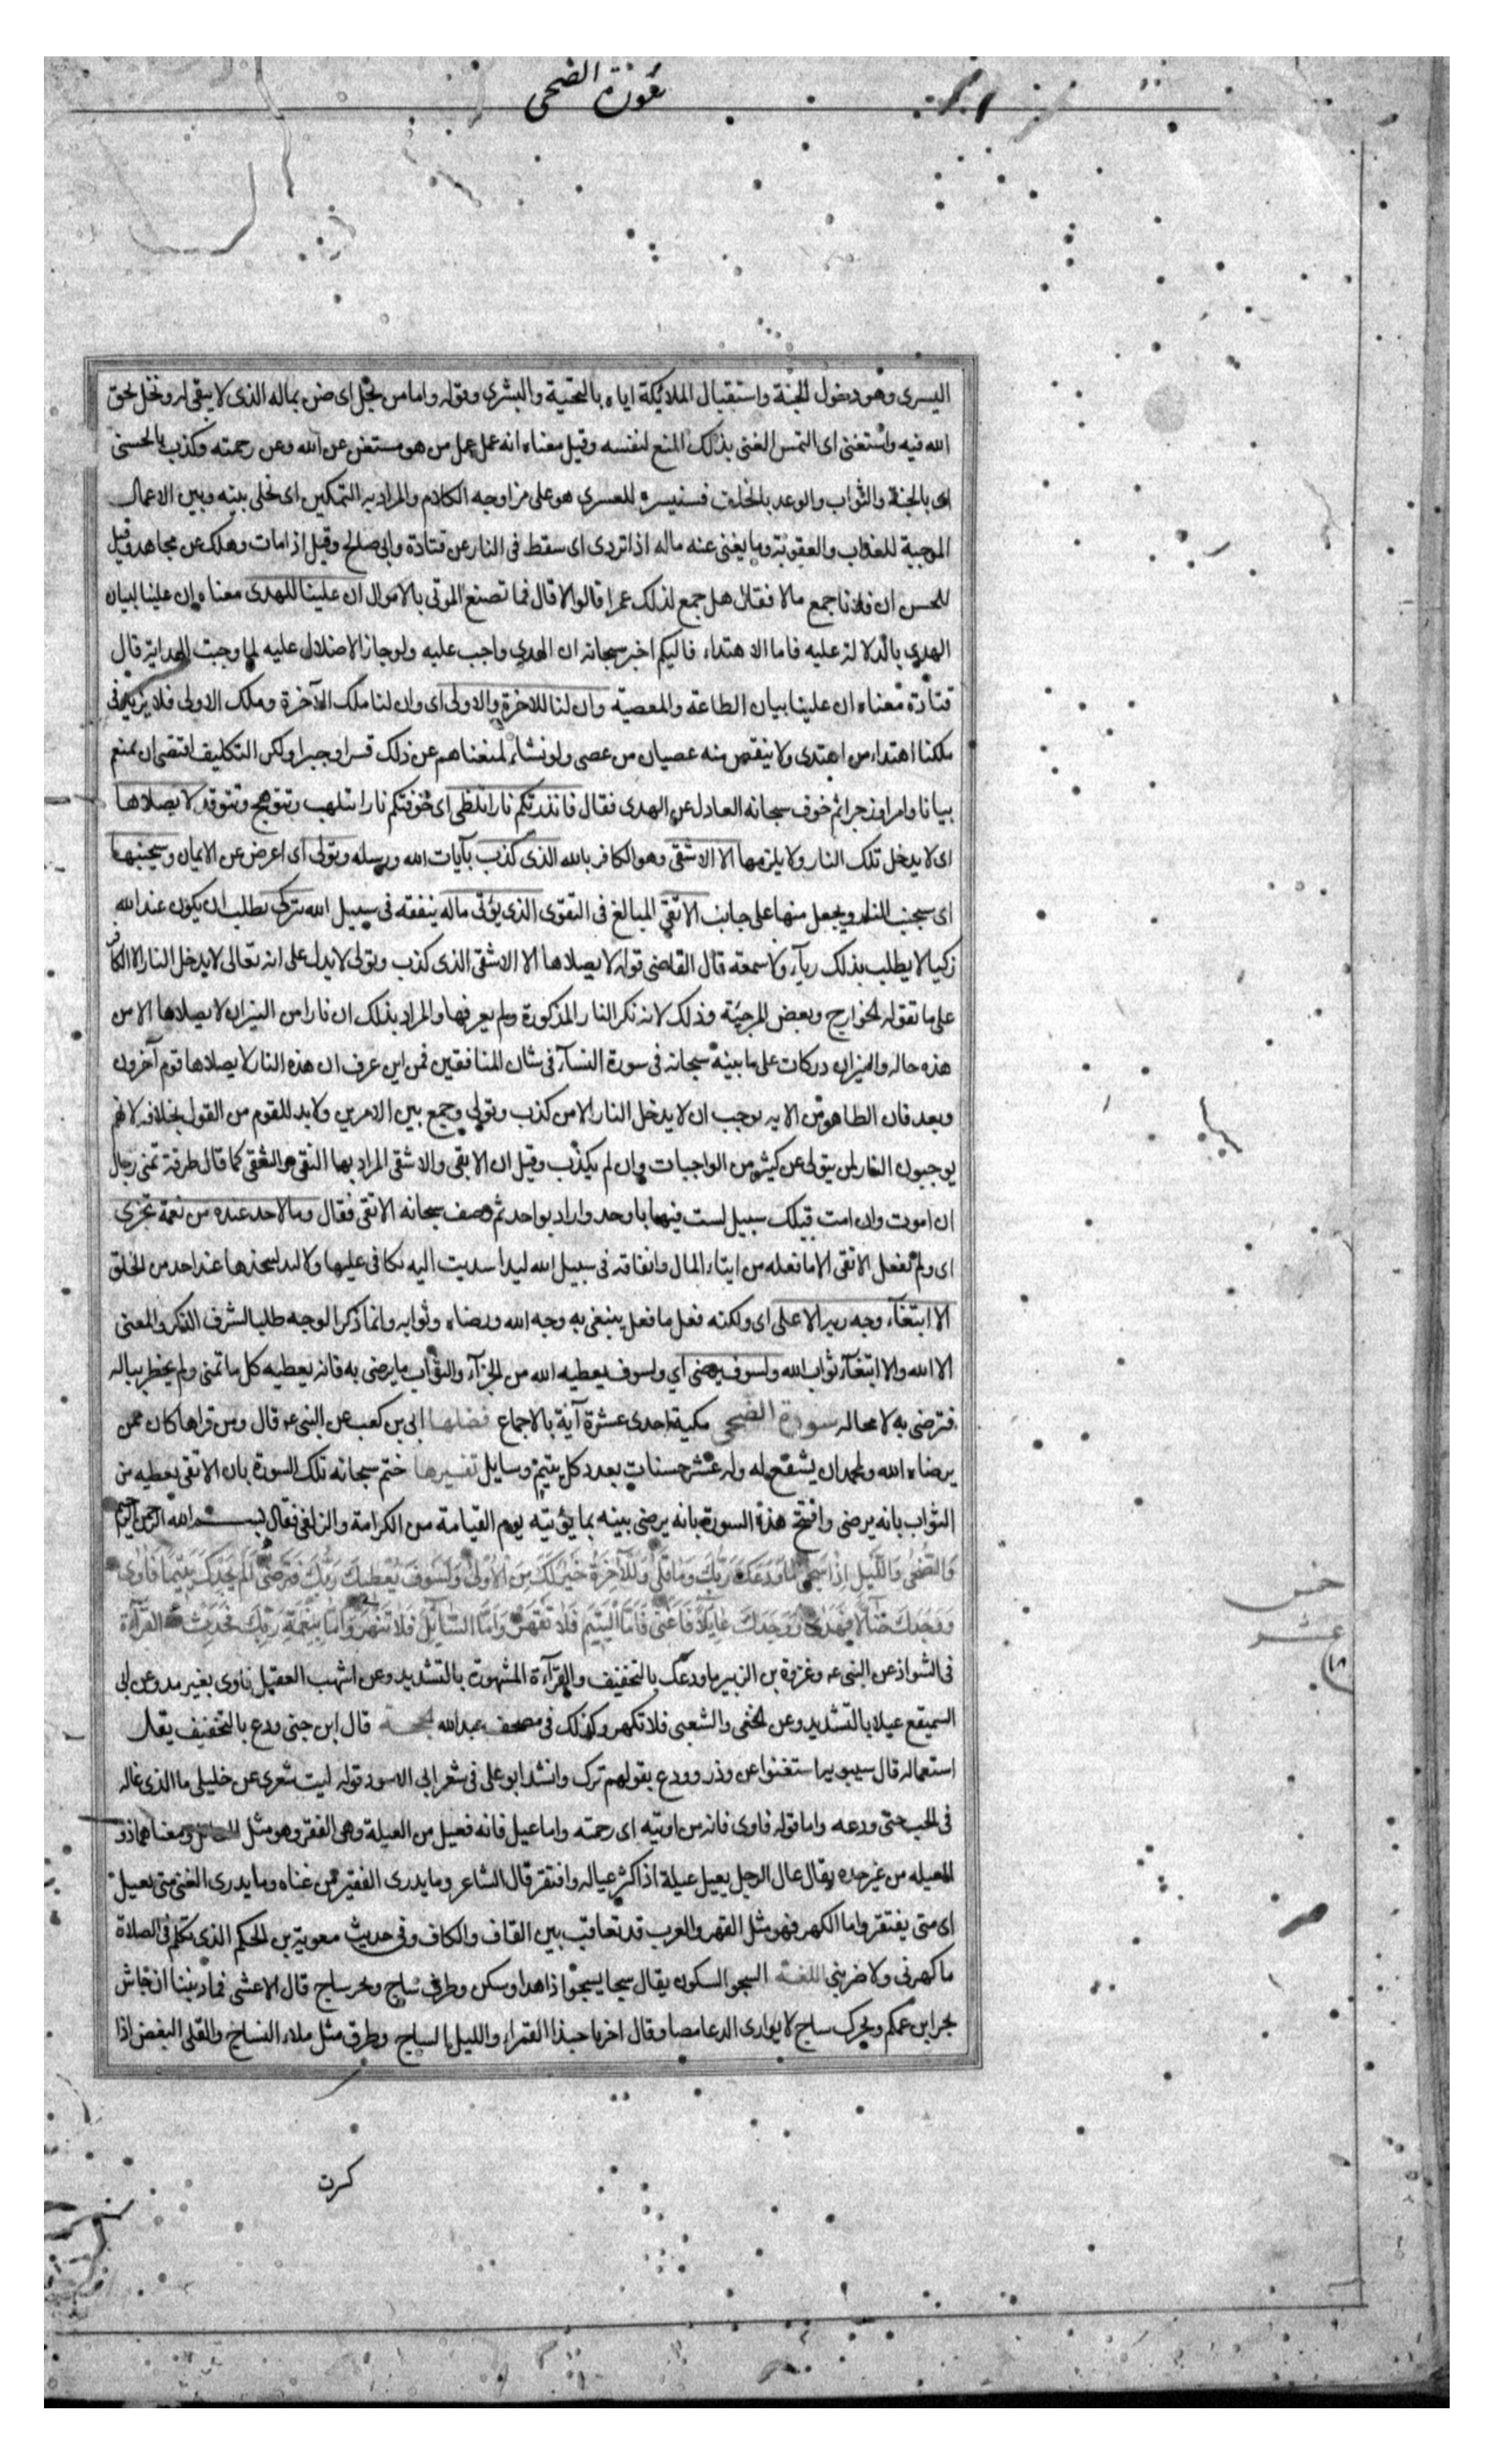 سورة الضحى
اليسرى وهو دخول الجنة واستقبال الملائكة اياه بالتحية والبشرى وقوله واما من بخل اى ضن بماله الذى لا يبقى له وبخل بحق
الله فيه واستغنى اى التمس الغنى بذلك المنع لنفسه وقيل معناه انه عمل عمل من هو مستغن عن الله وعن رحمته وكذب بالحسنى
اى بالجنة والثواب والوعد بالخلف فسنيسره للعسرى هو على مزاوجه الكلام والمراد به التمكين اى نخلى بينه وبين الاعمال
الموجبة للعذاب والعقوبة وما يغنى عنه ماله اذا تردى اى سقط فى النار عن قتادة وابى صالح وقيل اذا مات وهلك عن مجاهد وقيل
للحسن ان فلانا جمع مالا فقال هل جمع لذلك عمرا قالوا لا قال فما تصنع الموتى بالاموال ان علينا للهدى معناه ان علينا لبيان
الهدى بالدلالة عليه فاما الاهتداء فاليكم اخبر سبحانه ان الهدى واجب عليه ولو جاز الاضلال عليه لما وجبت الهداية قال
قتادة معناه ان علينا بيان الطاعة والمعصية وان لنا للاخرة والاولى اى وان لنا ملك الآخرة وملك الاولى فلا يزيد فى
ملكنا اهتداء من اهتدى ولا ينقص منه عصيان من عصى ولو نشاء لمنعناهم عن ذلك قسرا وجبرا ولكن التكليف اقتضى ان نمنع
بيانا وامرا وزجرا ثم خوف سبحانه العادل عن الهدى فقال فانذرتكم نارا تلظى اى خوفتكم نارا تتلهب وتتوهج وتتوقد لا يصلاها
اى لا يدخل تلك النار ولا يلزمها الا الاشقى وهو الكافر بالله الذى كذب بآيات الله ورسله وتولى اى اعرض عن الايمان وسيجنبها
اى سيجنب النار ويجعل منها على جانب الاتقى المبالغ فى التقوى الذى يؤتى ماله ينفقه فى سبيل الله يتزكى يطلب ان يكون عند الله
زكيا لا يطلب بذلك رياء ولا سمعة قال القاضى قوله لا يصلاها الا الاشقى الذى كذب وتولى لا يدل على انه تعالى لا يدخل النار الا الكافر
على ما تقوله الخوارج وبعض المرجئة وذلك لانه نكر النار المذكورة ولم يعرفها والمراد بذلك ان نارا من النيران لا يصلاها الا من
هذه حاله والنيران دركات على ما بينه سبحانه فى سورة النساء فى شان المنافقين فمن اين عرف ان هذه النار لا يصلاها قوم آخرون
وبعد فان الظاهر من الايه يوجب ان لا يدخل النار الا من كذب وتولى وجمع بين الامرين ولا بد للقوم من القول بخلافه لانهم
يوجبون النار لمن يتولى عن كثير من الواجبات وان لم يكذب وقيل ان الاتقى والاشقى المراد بهما التقى والشقى كما قال طرفة تمنى رجال
ان اموت وان امت فتلك سبيل لست فيها باوحد واراد بواحد ثم وصف سبحانه الاتقى فقال وما لاحد عنده من نعمة تجزى
اى ولم يفعل الاتقى الا ما فعله من ايتاء المال وانفاقه فى سبيل الله ليد اسديت اليه يكافى عليها ولا ليد يتخذها عند احد من الخلق
الا ابتغاء وجه ربه الاعلى اى ولكنه فعل ما فعل يبتغى به وجه الله ورضاه وثوابه وانما ذكر الوجه طلبا لشرف الذكر والمعنى
الا الله والا ابتغاء ثواب الله ولسوف يرضى اي ولسوف يعطيه الله من الجزاء والثواب ما يرضى به فانه يعطيه كل ما تمنى ولم يخطر بباله
فترضى به لا محاله سورة الضحى مكية احدى عشرة آية بالاجماع فضلها ابى بن كعب عن النبى ع قال ومن قراها كان ممن
يرضاه الله ولمحمد ان يشفع له وله عشر حسنات بعدد كل يتيم وسايل تفسيرها ختم سبحانه تلك السورة بان الاتقى يعطيه من
الثواب بانه يرضى وافتتح هذه السورة بانه يرضى نبيه بما يؤتيه يوم القيامة من الكرامة والزلفى فقال بسم الله الرحمن الرحيم
وَالضُّحٰى وَاللَّيْلِ اِذَا سَجٰى مَا وَدَّعَكَ رَبُّكَ وَمَا قَلٰى وَلَلْآخِرَةُ خَيْرٌ لَكَ مِنَ الْاُوْلٰى وَلَسَوْفَ يُعْطِيكَ رَبُّكَ فَتَرْضٰى اَلَمْ يَجِدْكَ يَتِيْمًا فَاٰوٰى
وَوَجَدَكَ ضَآلًّا فَهَدٰى وَوَجَدَكَ عَآئِلًا فَاَغْنٰى فَاَمَّا الْيَتِيْمَ فَلَا تَقْهَرْ وَاَمَّا السَّآئِلَ فَلَا تَنْهَرْ وَاَمَّا بِنِعْمَةِ رَبِّكَ فَحَدِّثْ القرآءة
فى الشواذ عن النبى ع وعروة بن الزبير ما ودعك بالتخفيف والقرآءة المشهورة بالتشديد وعن اشهب العقيلى فاوى بغير مد وعن ابى
السميقع عيلا بالتشديد وعن النخعى والشعبى فلا تكهر وكذلك فى مصحف عبد الله الحجة قال ابن جنى ودع بالتخفيف يقل
استعماله قال سيبويه استغنوا عن وذر وودع بقولهم ترك وانشد ابو على فى شعر ابى الاسود قوله ليت شعرى عن خليلى ما الذى غاله
فى الحب حتى ودعه واما قوله فاوى فانه من اويته اى رحمته واما عيل فانه فعيل من العيلة وهى الفقر وهو مثل ومعناهما ذو
العيله من غير جده يقال عال الرجل يعيل عيلة اذا كثر عياله وافتقر قال الشاعر وما يدرى الفقير متى غناه وما يدرى الغنى متى يعيل
اى متى يفتقر واما الكهر فهو مثل القهر والعرب قد تعاقب بين القاف والكاف وفى حديث معوية بن الحكم الذى تكلم فى الصلاة
ما كهرنى ولا ضربنى اللغة السجو السكون يقال سجا يسجو اذا هدا وسكن وطرف ساج وبحر ساج قال الاعشى فما ذنبنا ان جاش
بحر ابن عمكم وبحرك ساج لا يوارى الدعامصا وقال اخر يا حبذا القمراء والليل الساج وطرق مثل ملاء النساج والقلى البغض اذا
خمس
عشر
كرت